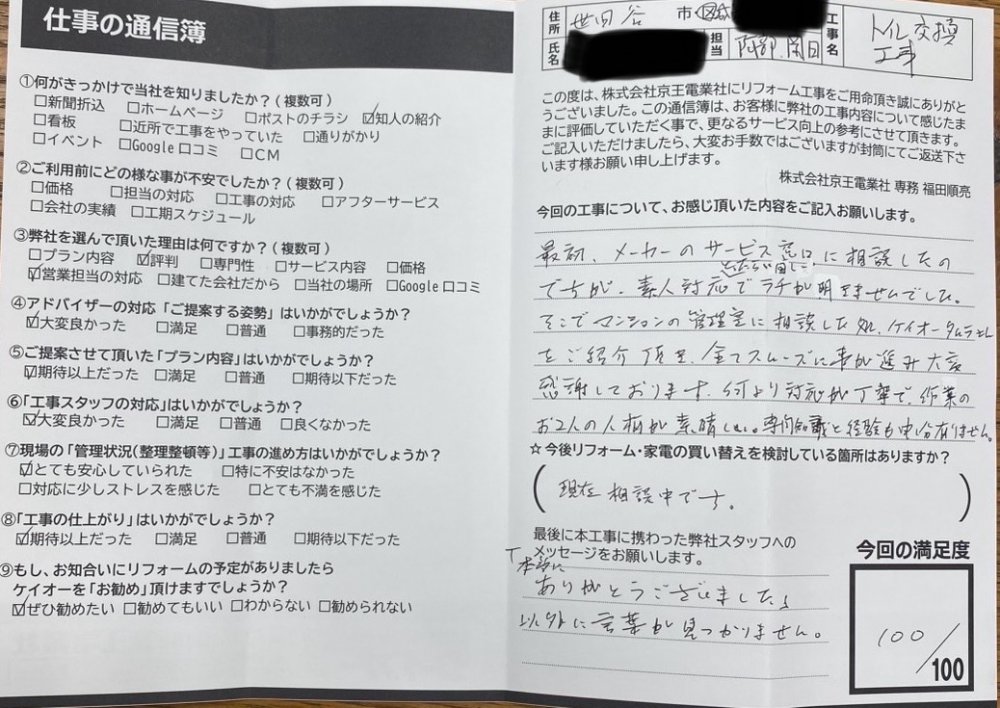 仕事の通信簿
①何がきっかけで当社を知りましたか?(複数可)
□新聞折込 □ホームページ □ポストのチラシ ☑知人の紹介
□看板 □近所で工事をやっていた □通りがかり
□イベント □Google口コミ □CM
②ご利用前にどの様な事が不安でしたか?(複数可)
□価格 □担当の対応 □工事の対応 □アフターサービス
□会社の実績 □工期スケジュール
③弊社を選んで頂いた理由は何ですか?(複数可)
□プラン内容 ☑評判 □専門性 □サービス内容 □価格
☑営業担当の対応 □建てた会社だから □当社の場所 □Google口コミ
④アドバイザーの対応「ご提案する姿勢」はいかがでしょうか?
☑大変良かった □満足 □普通 □事務的だった
⑤ご提案させて頂いた「プラン内容」はいかがでしょうか?
☑期待以上だった □満足 □普通 □期待以下だった
⑥「工事スタッフの対応」はいかがでしょうか?
☑大変良かった □満足 □普通 □良くなかった
⑦現場の「管理状況(整理整頓等)」工事の進め方はいかがでしょうか?
☑とても安心していられた □特に不安はなかった
□対応に少しストレスを感じた □とても不満を感じた
⑧「工事の仕上がり」はいかがでしょうか?
☑期待以上だった □満足 □普通 □期待以下だった
⑨もし、お知合いにリフォームの予定がありましたら
ケイオーを「お勧め」頂けますでしょうか?
☑ぜひ勧めたい □勧めてもいい □わからない □勧められない
住所 世田谷 市・区
氏名 担当 阿部.関口
工事名 トイレ交換
工事
この度は、株式会社京王電業社にリフォーム工事をご用命頂き誠にありがと
うございました。この通信簿は、お客様に弊社の工事内容について感じたま
まに評価していただく事で、更なるサービス向上の参考にさせて頂きます。
ご記入いただけましたら、大変お手数ではございますが封筒にてご返送下さ
います様お願い申し上げます。
株式会社京王電業社 専務 福田順亮
今回の工事について、お感じ頂いた内容をご記入お願いします。
最初、メーカーのサービス窓口に相談したの
たらい回し
ですが、素人対応でラチが明きませんでした。
そこでマンションの管理室に相談した処、ケイオータムラさん
をご紹介頂き、全てスムーズに事が進み大変
感謝しております。何より対応が丁寧で、作業の
お2人の人柄が素晴しい。専門知識と経験も申分有りません。
☆今後リフォーム・家電の買い替えを検討している箇所はありますか?
(現在相談中です。)
最後に本工事に携わった弊社スタッフへの
メッセージをお願いします。
「本当に
ありがとうございました」
以外に言葉が見つかりません。
今回の満足度
100/100